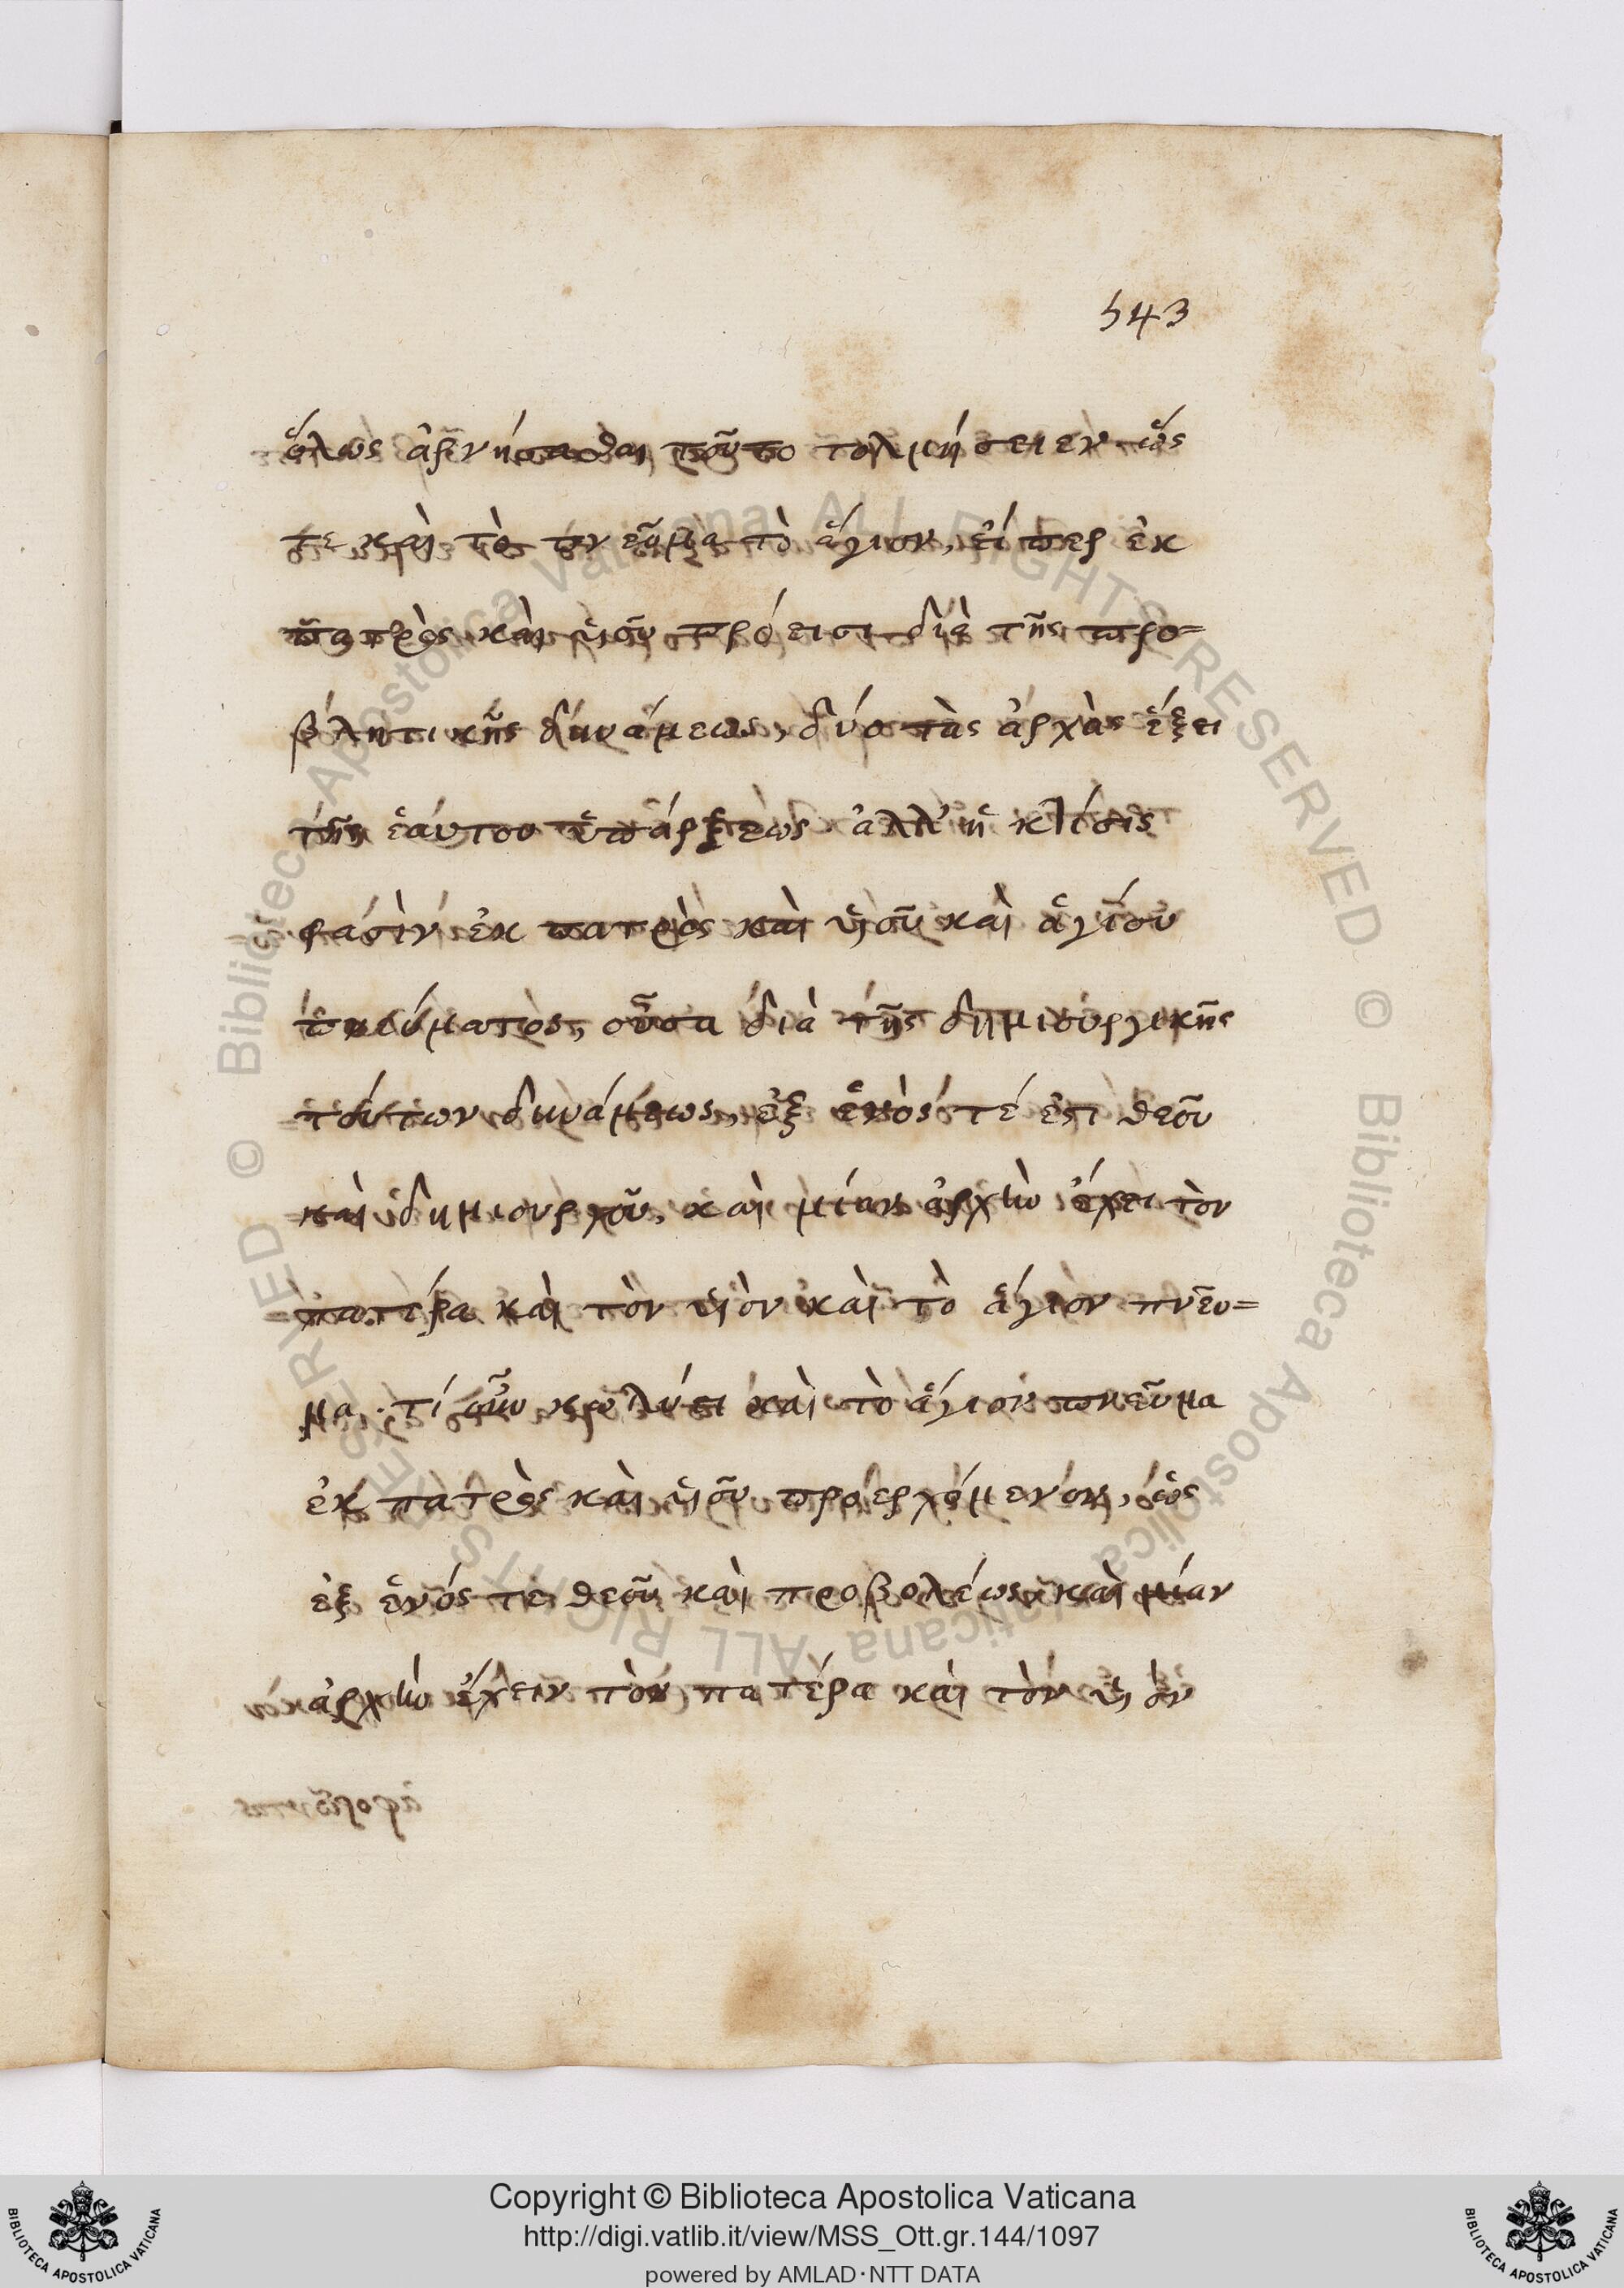 543
ὅλως ἀρνήσασθαι τοῦτο τολμήσειεν ὥς
τε καὶ τὸ πνεῦμα τὸ ἅγιον, εἴπερ ἐκ
πατρὸς καὶ υἱοῦ πρόεισι διὰ τῆς προ=
βλητικῆς δυνάμεως, δύο τὰς ἀρχὰς ἕξει
τῆς ἑαυτοῦ ὑπάρξεως ἀλλ' ἡ κτίσις
φασὶν ἐκ πατρὸς καὶ υἱοῦ καὶ ἁγίου
πνεύματος, οὖσα διὰ τῆς δημιουργικῆς
τούτων δυνάμεως, ἐξ ἑνός τέ ἐστι θεοῦ
καὶ δημιουργοῦ, καὶ μίαν ἀρχὴν ἔχει τὸν
πατέρα καὶ τὸν υἱὸν καὶ τὸ ἅγιον πνεῦ=
μα. τί οὖν κωλύει καὶ τὸ ἅγιον πνεῦμα
ἐκ πατρὸς καὶ υἱοῦ προερχόμενον, ὡς
ἐξ ἑνός τε θεοῦ καὶ προβολέως καὶ μίαν
ἀρχὴν ἔχειν τὸν πατέρα καὶ τὸν υἱὸν
Biblioteca Apostolica Vaticana ALL RIGHTS RESERVED ©
Biblioteca Apostolica Vaticana ALL RIGHTS RESERVED ©
Copyright © Biblioteca Apostolica Vaticana
http://digi.vatlib.it/view/MSS_Ott.gr.144/1097
powered by AMLAD·NTT DATA
BIBLIOTECA APOSTOLICA VATICANA
BIBLIOTECA APOSTOLICA VATICANA